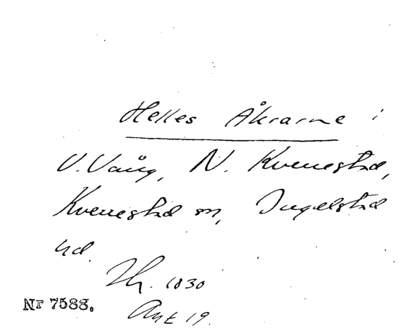 Helles Åkrarne i
V. Vång, N. Kvenestad,
Kvenestad sn, Ingelstad
hd.
Th. 1830
Akt 19.
Nr 7588.